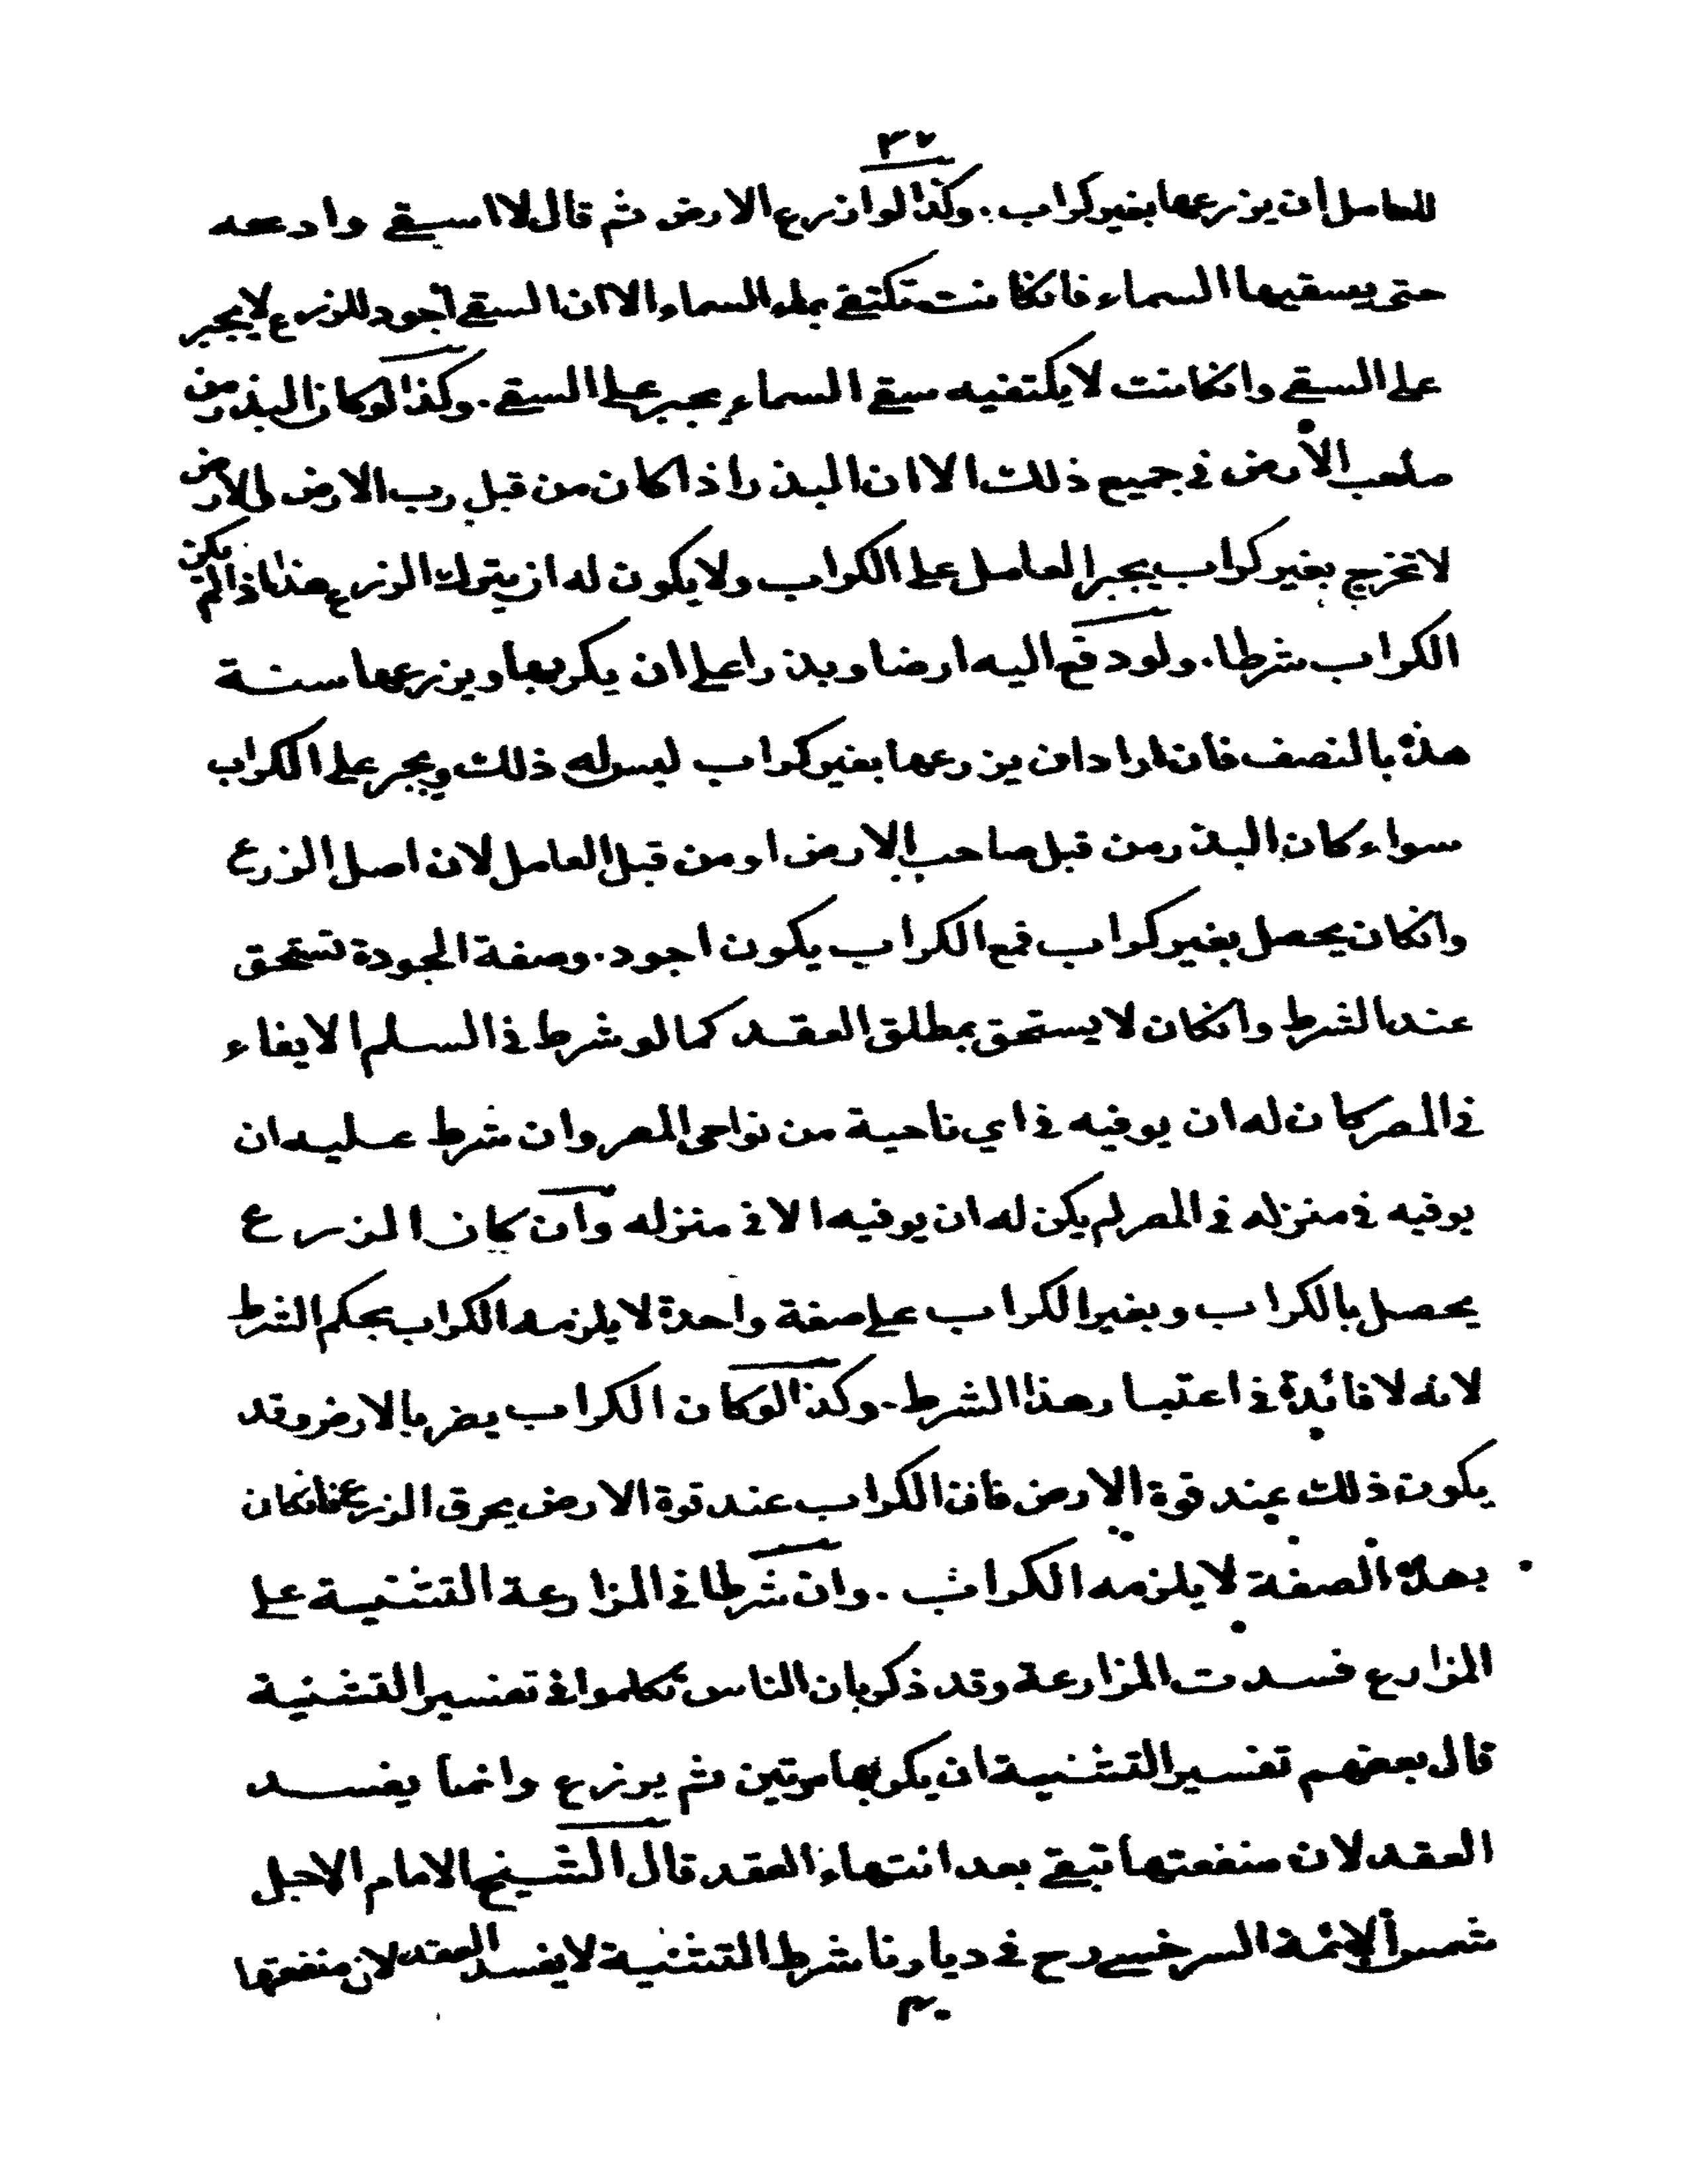 ٣٧
للعامل ان يزرعها بغير كراب . وكذا لو ازرع الارض ثم قال لا اسقي وادعه
حتى يسقيها السماء فانكانت تكتفي بماء السماء الا ان السقي اجود للزرع لا يجبر
على السقي وانكانت لا يكتفيه سقي السماء يجبر على السقي . وكذا لو كان البذر من
صاحب الارض في جميع ذلك الا ان البذر اذا كان من قبل رب الارض الارض
لا تخرج بغير كراب يجبر العامل على الكراب ولا يكون له ان يترك الزرع هذا اذا لم يكن
الكراب شرطا . ولو دفع اليه ارضا وبذرا على ان يكربها ويزرعها سنة
هذه بالنصف فان اراد ان يزرعها بغير كراب ليس له ذلك ويجبر على الكراب
سواء كان البذر من قبل صاحب الارض او من قبل العامل لان اصل الزرع
وانكان يحصل بغير كراب فمع الكراب يكون اجود . وصفة الجودة تستحق
عند الشرط وانكان لا يستحق بمطلق العقد كما لو شرط في السلم الايفاء
في المصر كان له ان يوفيه في اي ناحية من نواحى المصر وان شرط عليه ان
يوفيه في منزله في المصر لم يكن له ان يوفيه الا في منزله وان كان الزرع
يحصل بالكراب وبغير الكراب على صفة واحدة لا يلزمه الكراب بحكم الشرط
لانه لا فائدة في اعتبار هذا الشرط . وكذا لو كان الكراب يضر بالارض وقد
يكون ذلك عند قوة الارض فان الكراب عند قوة الارض يحرق الزرع فانكان
بهذه الصفة لا يلزمه الكراب . وان شرطا في المزارعة التثنية على
المزارع فسدت المزارعة وقد ذكر بان الناس تكلموا في تفسير التثنية
قال بعضهم تفسير التثنية ان يكربها مرتين ثم يزرع وانما يفسد
العقد لان منفعتها تبقى بعد انتهاء العقد قال الشيخ الامام الاجل
شمس الائمة السرخسي رح في ديارنا شرط التثنية لا يفسد العقد لان منفعتها
٣٠